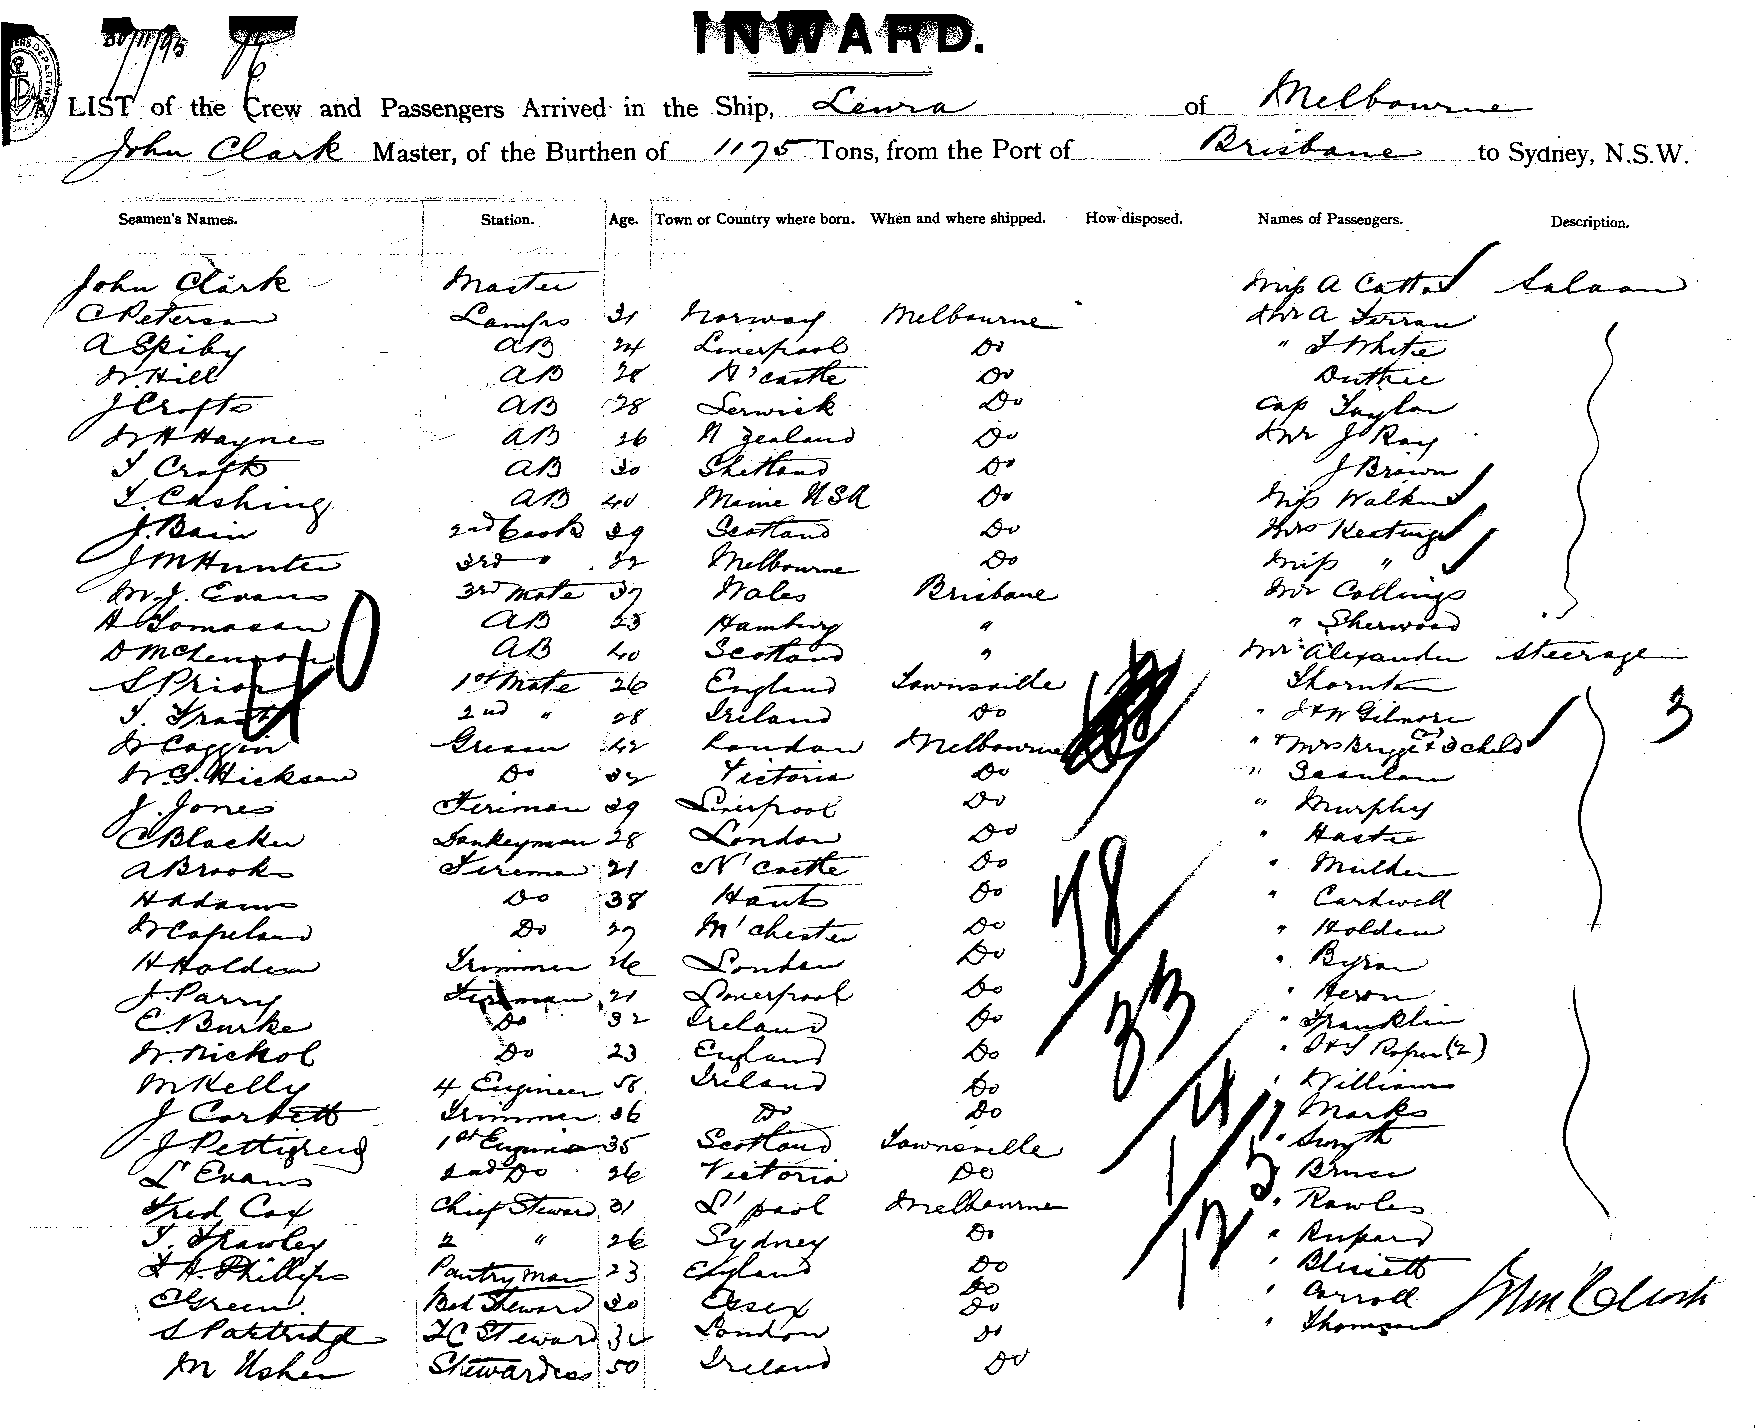 INWARD.
LIST of the Crew and Passengers Arrived in the Ship, Leura of Melbourne
John Clark Master, of the Burthen of 1175 Tons, from the Port of Brisbane to Sydney, N.S.W.
Seamen's Names. Station. Age. Town or Country where born. When and where shipped. How disposed. Names of Passengers. Description.
John Clark Master Miss A Cotton Saloon
C Peterson Lamps 31 Norway Melbourne Mr A Ferran
A Spiby AB 24 Liverpool Do " T White
W. Hill AB 28 N'castle Do Duthie
J Crofts AB 28 Lerwick Do Cap Taylor
W H Haynes AB 26 N Zealand Do Mr J Ray
T Crofts AB 30 Shetland Do J Brown
T. Cushing AB 40 Maine USA Do Miss Walkins
J. Bain 2nd Cook 39 Scotland Do Mrs Keating
J M Hunter 3rd " 32 Melbourne Do Miss "
W. J. Evans 3rd Mate 37 Wales Brisbane Mr Collings
H Tomasan AB 23 Hamburg " " Sherwood
D McLennan AB 40 Scotland " Mr Alexander Steerage
S Prior 1st Mate 26 England Townsville Thornton
T. 2nd " 28 Ireland Do " J & W Gilmore 3
W Coggin Greaser 42 London Melbourne " Mrs & 3 child
W. G. Hickson Do 32 Victoria Do " Scanlan
J. Jones Fireman 39 Liverpool Do " Murphy
C Blacker Donkeyman 28 London Do " Hastie
A Brooks Fireman 21 N'castle Do " Mulhern
H Adams Do 38 Hants Do " Cardwell
W Copeland Do 27 M'chester Do " Holden
H Holden Trimmer 26 London Do " Byron
J. Parry Fireman 21 Liverpool Do " Heron
C Burke Do 32 Ireland Do " Franklin
W. Nickol Do 23 England Do " D & S Roper (2)
M Kelly 4 Engineer 58 Ireland Do " Williams
J Corbett Trimmer 36 Do Do " Marks
J Pettigrew 1st Engineer 35 Scotland Townsville " Smyth
L Evans 2nd Do 26 Victoria Do " Bruce
Fred Cox Chief Steward 31 L'pool Melbourne " Rawles
T. Frawley 2 " 26 Sydney Do " Ruppard
F H. Phillips Pantry Man 23 England Do " Blissett
C Green. Bed Steward 30 Essex Do " Carroll
S Partridge F C Steward 32 London Do " Thomson
M Usher Stewardess 50 Ireland Do
John Clark